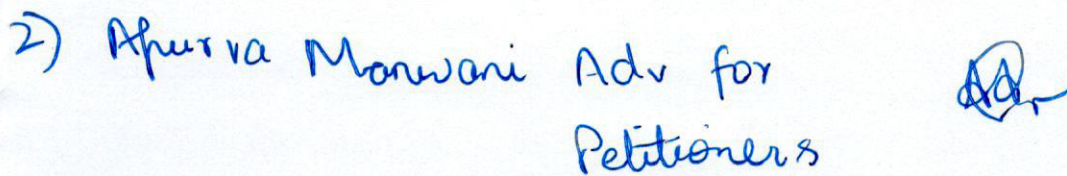 2) Apurva Manwani Adv for
Petitioners